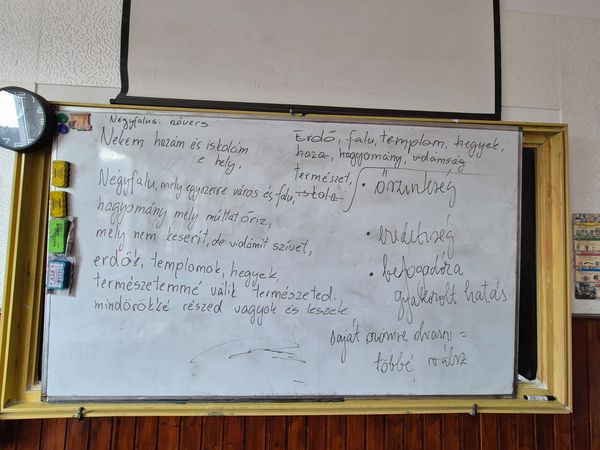 Négyfalusi nővers
Nekem hazám és iskolám
e hely,
Négyfalu, mely egyszerre város és falu,
hagyomány mely múltat őriz,
mely nem keserít, de vidámít szívet,
erdők, templomok, hegyek,
természetemmé válik természeted,
mindörökké részed vagyok és leszek
Erdő, falu, templom, hegyek,
haza, hagyomány, vidámság
természet,
iskola
• őszinteség
• eredetiség
• befogadóra
gyakorolt hatás
saját örömre olvasni =
többé válsz